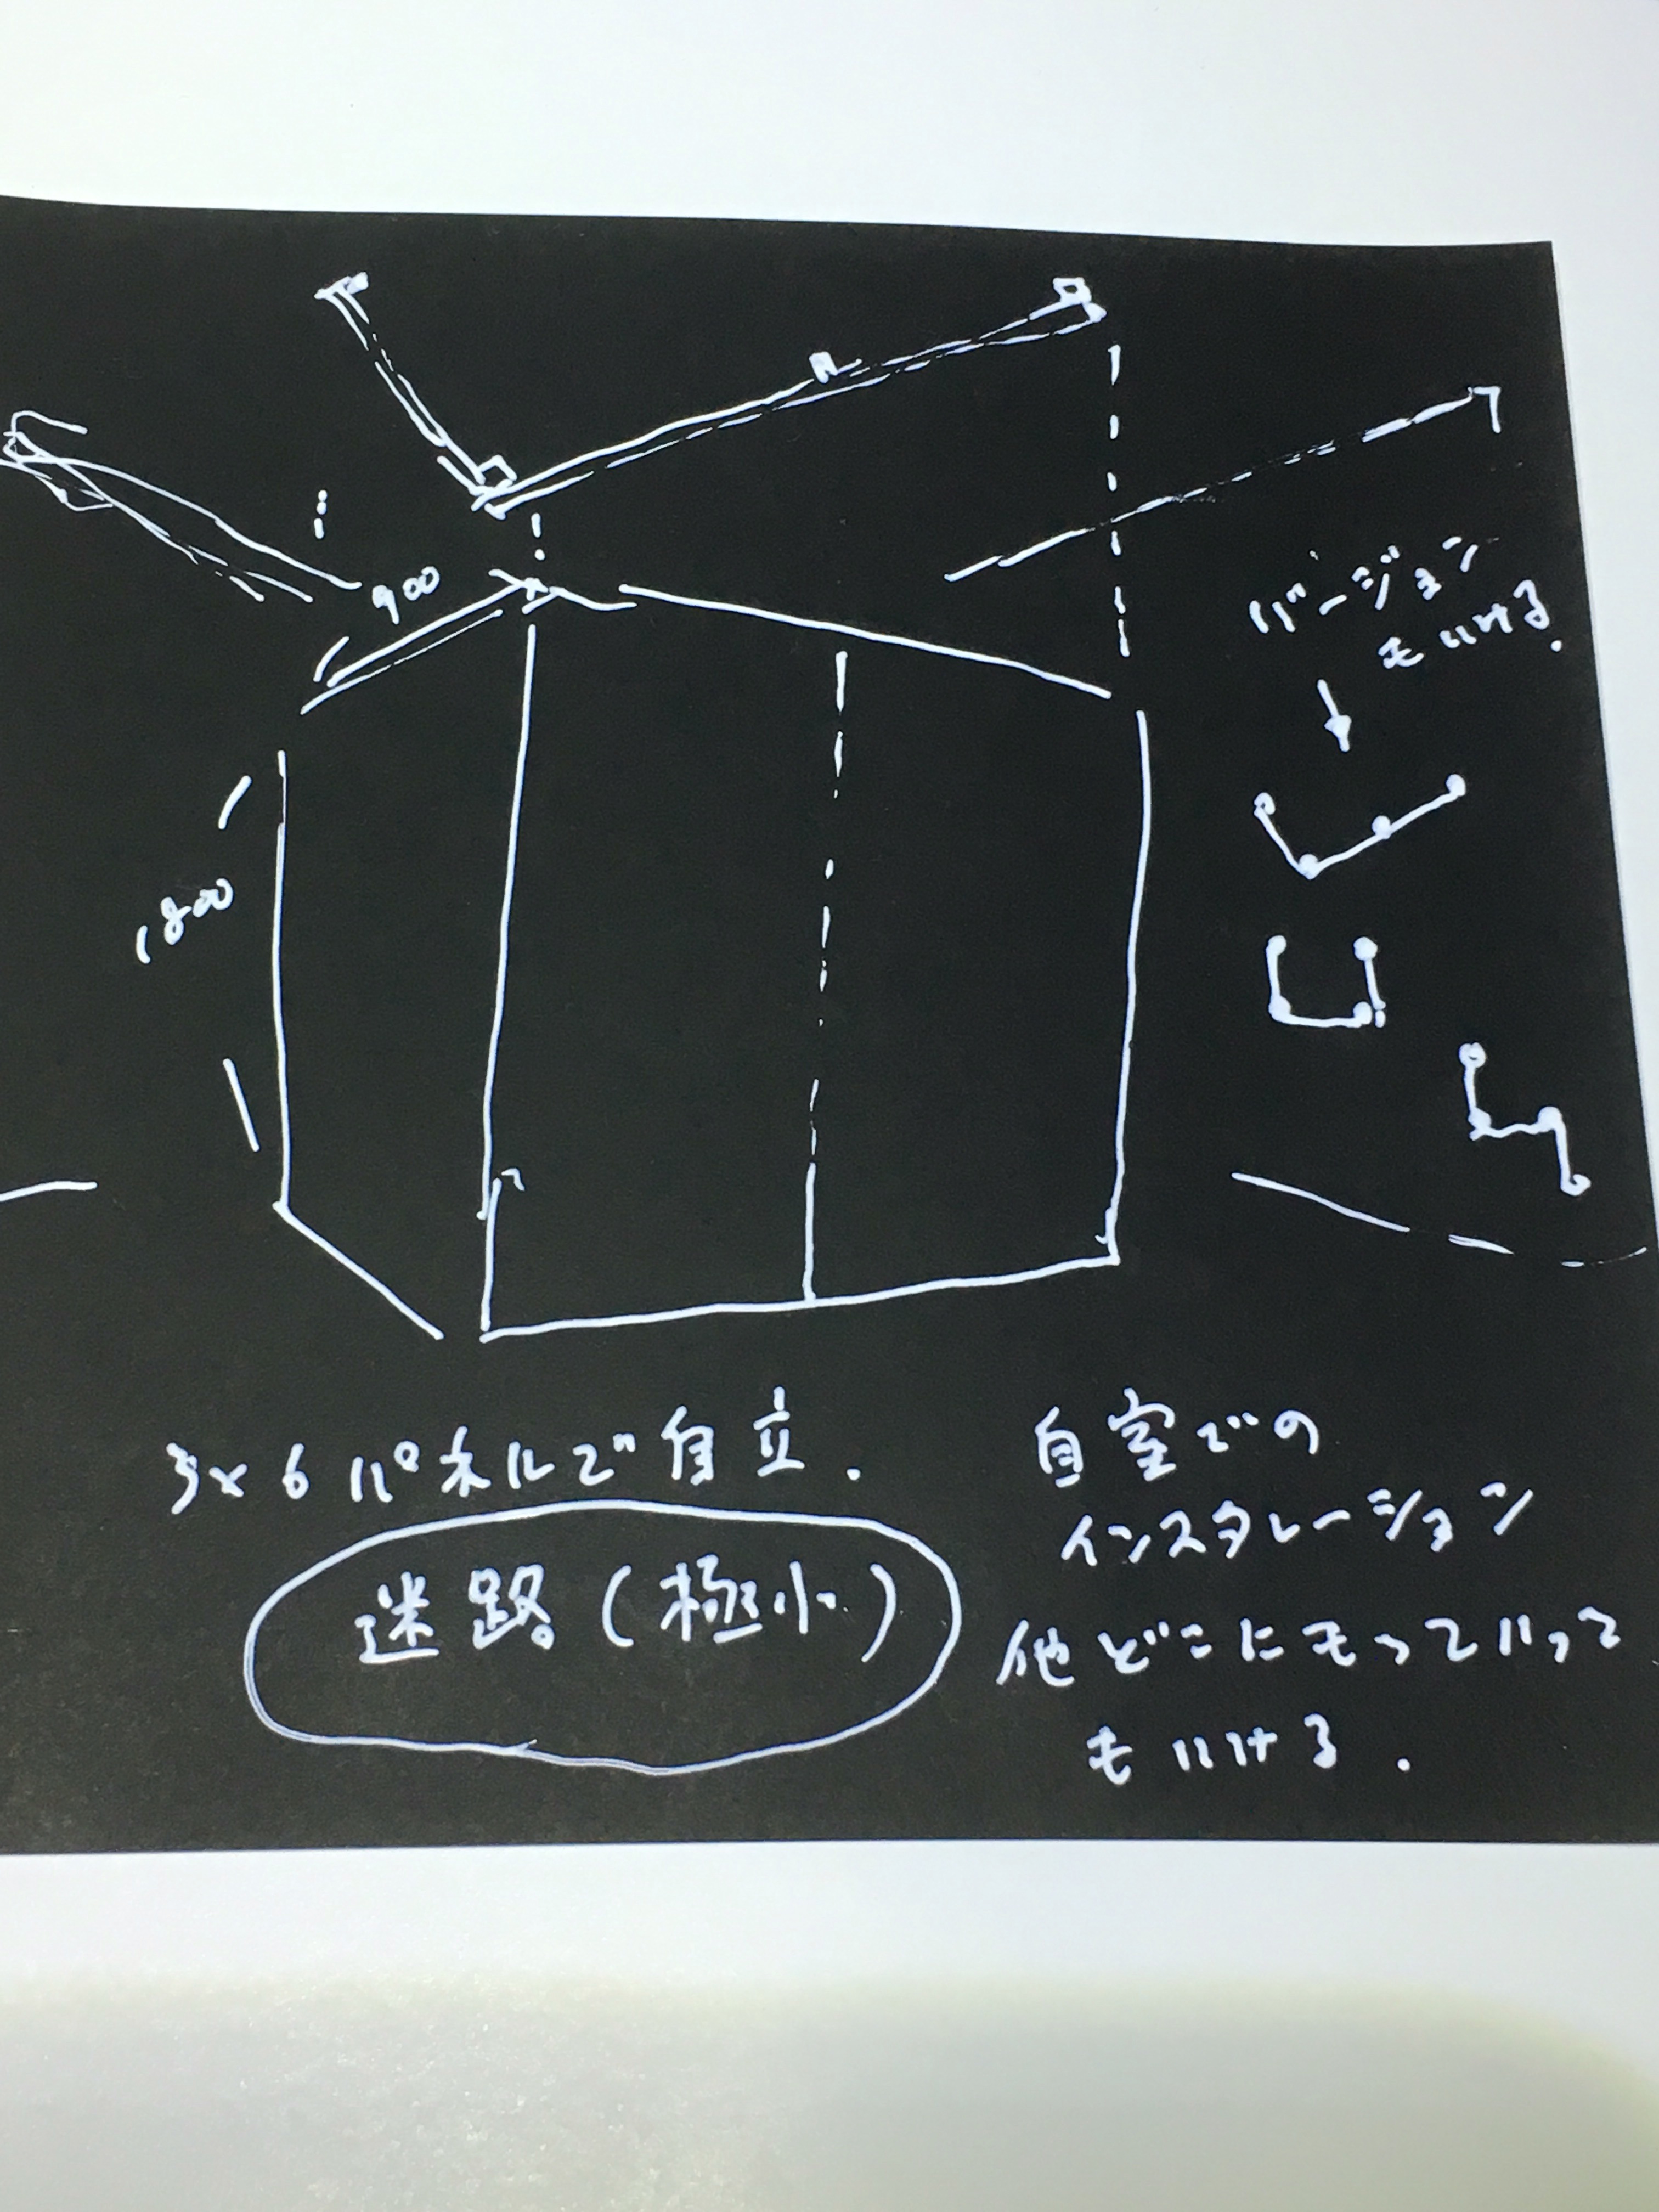 900
バージョン
もいける.
1800
3×6パネルで自立.
迷路(極小)
自室での
インスタレーション
他どこにもっていって
もいける.